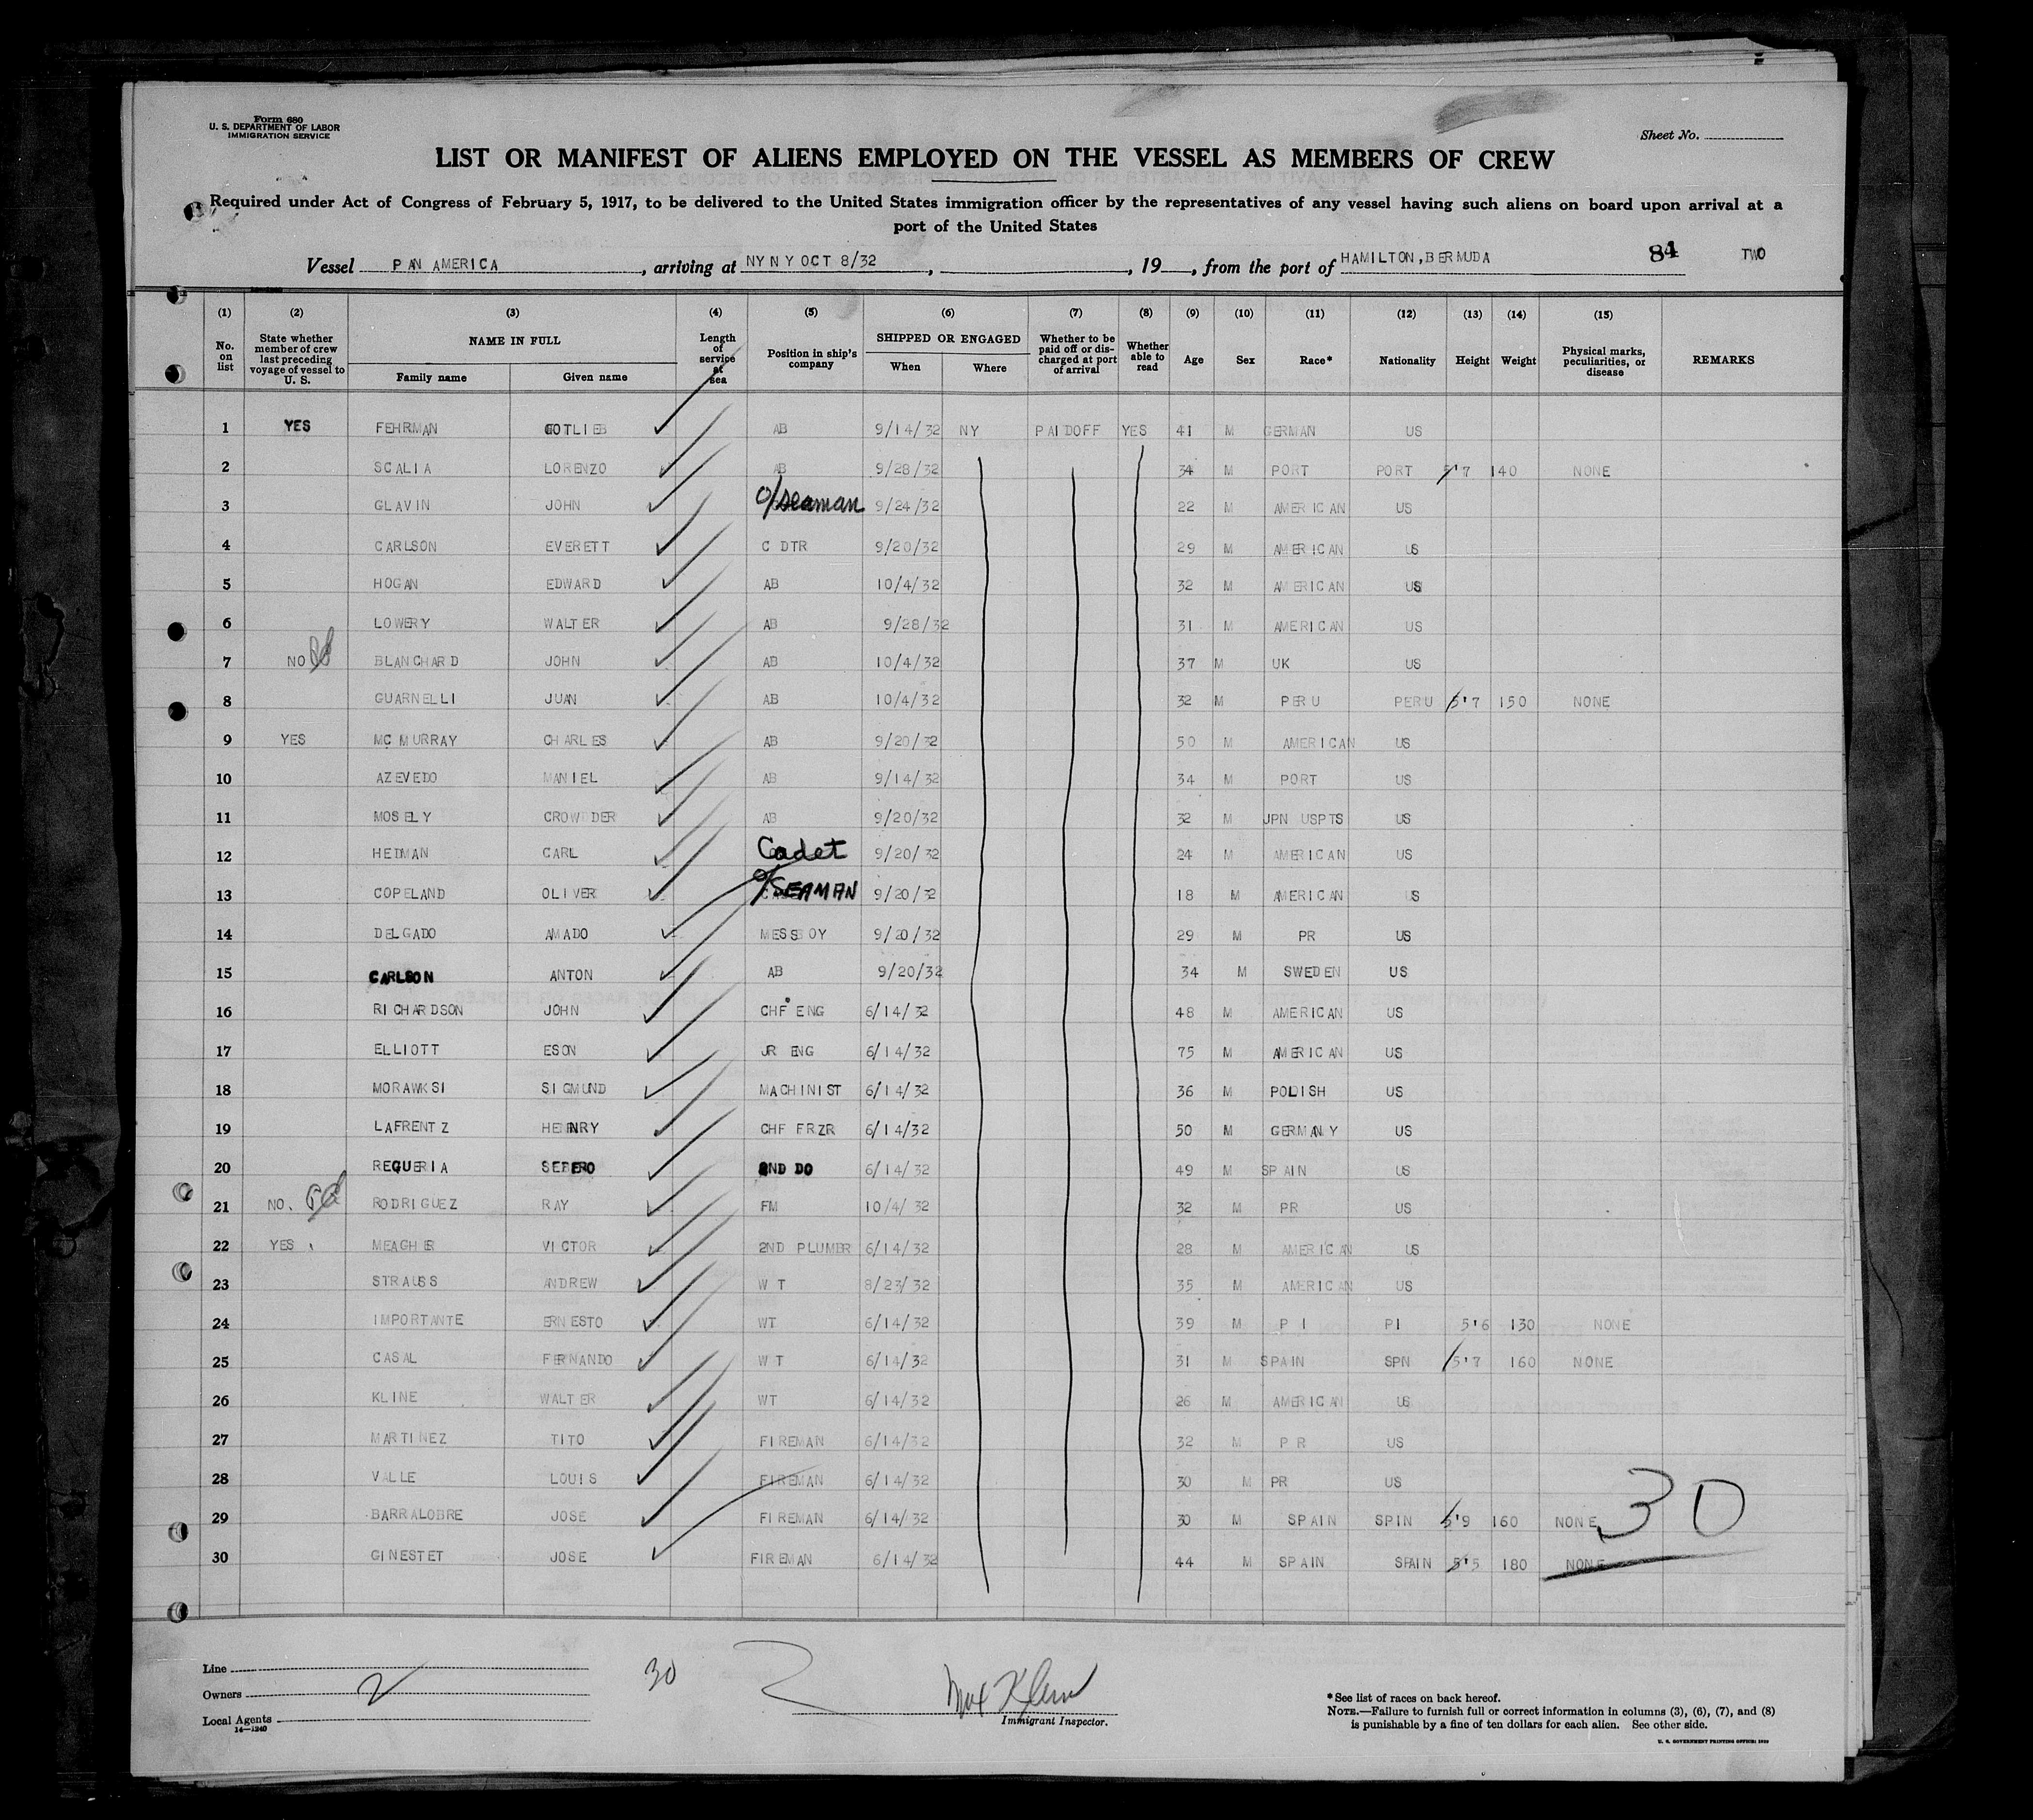 Form 680
U. S. DEPARTMENT OF LABOR
IMMIGRATION SERVICE
Sheet No.
LIST OR MANIFEST OF ALIENS EMPLOYED ON THE VESSEL AS MEMBERS OF CREW
Required under Act of Congress of February 5, 1917, to be delivered to the United States immigration officer by the representatives of any vessel having such aliens on board upon arrival at a
port of the United States
Vessel PAN AMERICA, arriving at NY N Y OCT 8/32, , 19 , from the port of HAMILTON, BERMUDA 84 TWO
(1) (2) (3) (4) (5) (6) (7) (8) (9) (10) (11) (12) (13) (14) (15)
No. on list State whether member of crew last preceding voyage of vessel to U. S. NAME IN FULL Family name Given name Length of service at sea Position in ship's company SHIPPED OR ENGAGED When Where Whether to be paid off or discharged at port of arrival Whether able to read Age Sex Race* Nationality Height Weight Physical marks, peculiarities, or disease REMARKS
1 YES FEHRMAN GOTLIEB AB 9/14/32 NY PAIDOFF YES 41 M GERMAN US
2 SCALIA LORENZO AB 9/28/32 34 M PORT PORT 5'7 140 NONE
3 GLAVIN JOHN O/seaman 9/24/32 22 M AMERICAN US
4 CARLSON EVERETT C DTR 9/20/32 29 M AMERICAN US
5 HOGAN EDWARD AB 10/4/32 32 M AMERICAN US
6 LOWERY WALTER AB 9/28/32 31 M AMERICAN US
7 NO BLANCHARD JOHN AB 10/4/32 37 M UK US
8 GUARNELLI JUAN AB 10/4/32 32 M PERU PERU 5'7 150 NONE
9 YES MC MURRAY CHARLES AB 9/20/32 50 M AMERICAN US
10 AZEVEDO MANIEL AB 9/14/32 34 M PORT US
11 MOSELY CROWTDER AB 9/20/32 32 M JPN USPTS US
12 HEDMAN CARL Cadet 9/20/32 24 M AMERICAN US
13 COPELAND OLIVER O/SEAMAN 9/20/32 18 M AMERICAN US
14 DELGADO AMADO MESSBOY 9/20/32 29 M PR US
15 CARLSON ANTON AB 9/20/32 34 M SWEDEN US
16 RICHARDSON JOHN CHF ENG 6/14/32 48 M AMERICAN US
17 ELLIOTT ESON JR ENG 6/14/32 75 M AMERICAN US
18 MORAWKSI SIGMUND MACHINIST 6/14/32 36 M POLISH US
19 LAFRENTZ HENRY CHF FRZR 6/14/32 50 M GERMANY US
20 REQUERIA SEFERO 2ND DO 6/14/32 49 M SPAIN US
21 NO. RODRIGUEZ RAY FM 10/4/32 32 M PR US
22 YES MEAGHER VICTOR 2ND PLUMBR 6/14/32 28 M AMERICAN US
23 STRAUSS ANDREW W T 8/23/32 35 M AMERICAN US
24 IMPORTANTE ERNESTO WT 6/14/32 39 M P I PI 5'6 130 NONE
25 CASAL FERNANDO W T 6/14/32 31 M SPAIN SPN 5'7 160 NONE
26 KLINE WALTER WT 6/14/32 26 M AMERICAN US
27 MARTINEZ TITO FIREMAN 6/14/32 32 M P R US
28 VALLE LOUIS FIREMAN 6/14/32 30 M PR US
29 BARRALOBRE JOSE FIREMAN 6/14/32 30 M SPAIN SPIN 5'9 160 NONE
30 GINESTET JOSE FIREMAN 6/14/32 44 M SPAIN SPAIN 5'5 180 NONE
30
Line
Owners
Local Agents
14-1240
2
30
Max Klein
Immigrant Inspector.
*See list of races on back hereof.
NOTE.—Failure to furnish full or correct information in columns (3), (6), (7), and (8)
is punishable by a fine of ten dollars for each alien. See other side.